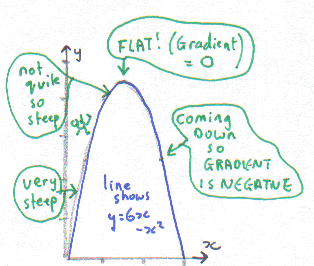 y
FLAT! (Gradient)
= 0
not
quite
so
steep
coming
DOWN
so
GRADIENT
IS NEGATIVE
very
steep
line
shows
y=6x
-x²
x